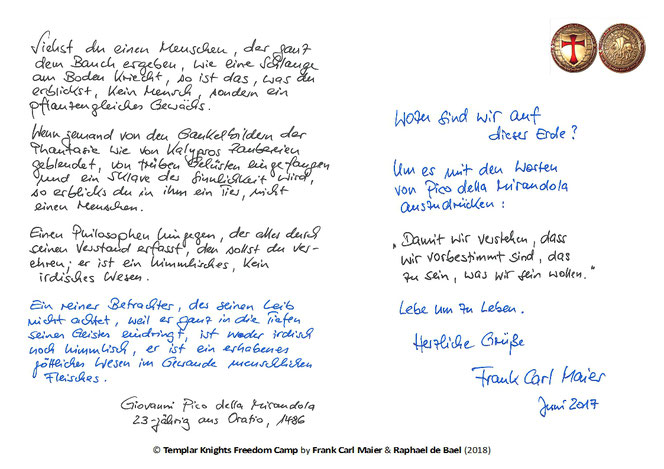 Siehst du einen Menschen, der ganz
dem Bauch ergeben, wie eine Schlange
am Boden kriecht, so ist das, was du
erblickst, kein Mensch, sondern ein
pflanzengleiches Gewächs.
Wenn jemand von den Gaukelbildern der
Phantasie wie von Kalypsos Zaubereien
geblendet, von trüben Gelüsten eingefangen
und ein Sklave der Sinnlichkeit wird,
so erblicks du in ihm ein Tier, nicht
einen Menschen.
Einen Philosophen hingegen, der alles durch
seinen Verstand erfasst, den sollst du ver-
ehren; er ist ein himmlisches, kein
irdisches Wesen.
Ein reiner Betrachter, der seinen Leib
nicht achtet, weil er ganz in die Tiefen
seiner Geistes eindringt, ist weder irdisch
noch himmlisch, er ist ein erhabenes
göttliches Wesen im Gewande menschlichen
Fleisches.
Giovanni Pico della Mirandola
23-jährig aus Oratio, 1486
Wozu sind wir auf
dieser Erde?
Um es mit den Worten
von Pico della Mirandola
auszudrücken:
„Damit wir verstehen, dass
wir vorbestimmt sind, das
zu sein, was wir sein wollen."
Lebe um zu Leben.
Herzliche Grüße
Frank Carl Maier
Juni 2017
© Templar Knights Freedom Camp by Frank Carl Maier & Raphael de Bael (2018)